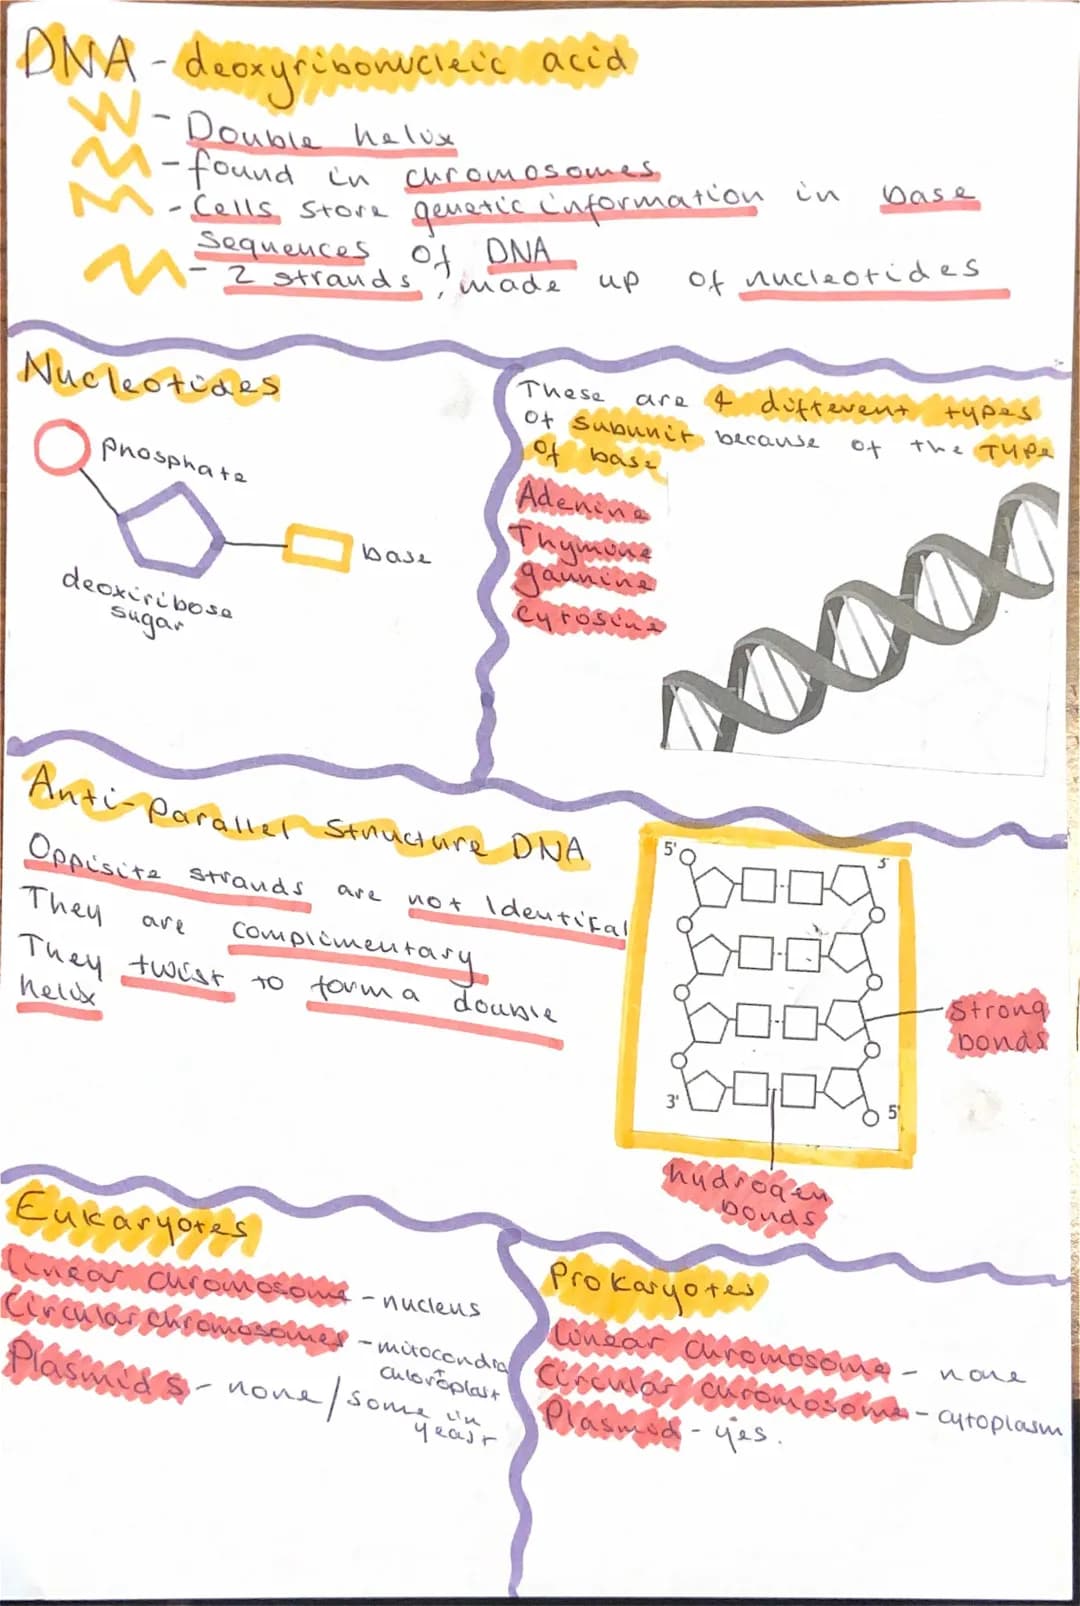 DNA - deoxyribonucleic acid
- Double helix
- found in chromosomes
- Cells store genetic information in base
sequences of DNA
- 2 strands, made up of nucleotides
Nucleotides
phosphate
base
deoxiribose
sugar
These are 4 different types
of subunit because of the TYPe
of base
Adenine
Thymine
gaunine
Cytosine
Anti-Parallel Structure DNA
Oppisite strands are not Identifal
They are complimentary
They twist to form a double
helix
5'
3'
3'
5'
Strong
bonds
hydrogen
bonds
Eukaryotes
Linear chromosome - nucleus
Circular chromosomes - mitocondria
+
chloroplast
Plasmids - none/some in
yeast
Prokaryotes
Linear chromosome - none
Circular chromosome - cytoplasm
Plasmid - yes.